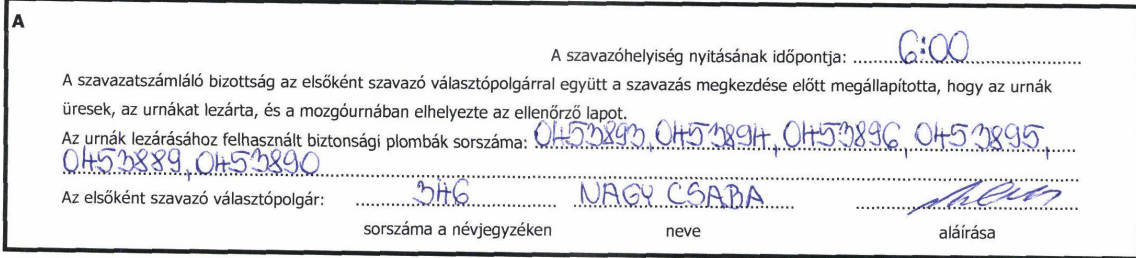 A
A szavazóhelyiség nyitásának időpontja: 6:00
A szavazatszámláló bizottság az elsőként szavazó választópolgárral együtt a szavazás megkezdése előtt megállapította, hogy az urnák
üresek, az urnákat lezárta, és a mozgóurnában elhelyezte az ellenőrző lapot.
Az urnák lezárásához felhasznált biztonsági plombák sorszáma: 0453893, 0453894, 0453896, 0453895,
0453889, 0453890
Az elsőként szavazó választópolgár: 346 NAGY CSABA
sorszáma a névjegyzéken neve aláírása